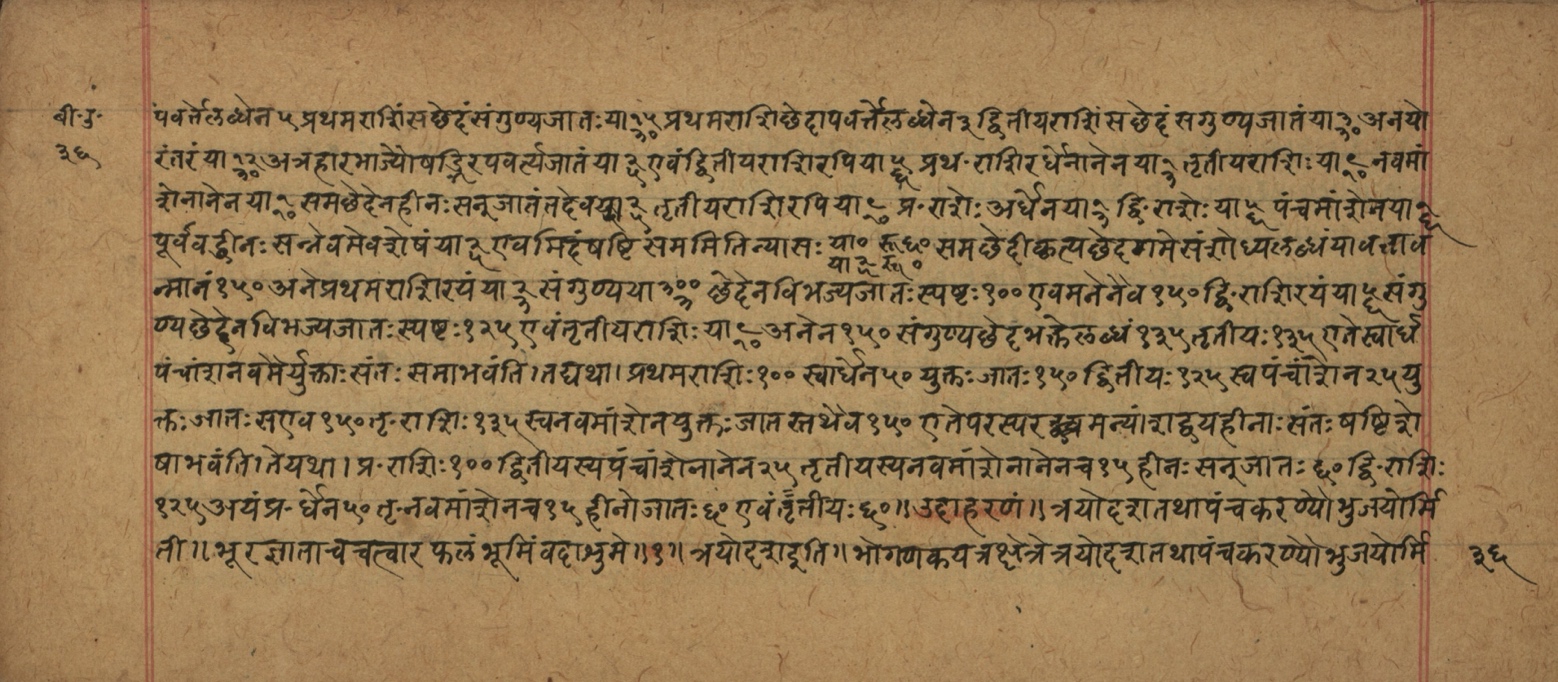 बी॰उ॰
३६
पवर्त्तेलब्धेन५प्रथमराशिंसछेदंसंगुण्यजातःया१५ प्रथमराशिछेदापवर्त्तेलब्धेन३द्वितीयराशिंसछेदंसगुण्यजातंया अनयो
रंतरंया अत्रहारभाज्यौषड्भिरपवर्त्यजातंया एवंद्वितीयराशिरपिया प्रथ॰राशिरर्धेनानेनया तृतीयराशिःया नवमां
शेनानेनया समछेदेनहीनःसन्जातंतदेवया तृतीयराशिरपिया प्र॰राशेःअर्धेनया द्वि॰राशेःया पंचमांशेनया
पूर्ववद्धीनःसन्नेवमेवशेषंया एवमिदंषष्टिसममितिन्यासःया॰रू६० या२रू॰ समछेदीकृत्यछेदगमेसंशोध्यलब्धंयावत्ताव
न्मानं१५०अनेप्रथमराशिरयंया संगुण्यया३०० छेदेनविभज्यजातःस्पष्टः१००एवमनेनैव१५०द्वि॰राशिरयंया५संगु
ण्यछेदेनविभज्यजातःस्पष्टः१२५एवंतृतीयराशिःया अनेन१५०संगुण्यछेदभक्तेलब्धं१३५तृतीयः१३५एतेस्वार्ध
पंचांशनवमैर्युक्ताःसंतःसमाभवंति।तद्यथा।प्रथमराशिः१००स्वार्धेन५०युक्तःजातः१५०द्वितीयः१२५स्वपंचांशेन२५यु
क्तःजातःसएव१५०तृ॰राशिः१३५स्वनवमांशेनयुक्तःजातस्तथैव१५०एतेपरस्परमन्यांशद्वयहीनाःसंतःषष्टिशे
षाभवंति।तेयथा।प्र॰राशिः१००द्वितीयस्यपंचांशेनानेन२५तृतीयस्यनवमांशेनानेनच१५हीनःसन्जातः६०द्वि॰राशिः
१२५अयंप्र॰र्धेन५०तृ॰नवमांशेनच१५हीनोजातः६०एवंतृतीयः६०॥उदाहरणं॥त्रयोदशतथापंचकरण्यौभुजयोर्मि
ती॥भूरज्ञाताचचत्वारफलंभूमिंवदाशुमे॥१॥त्रयोदशइति॥भोगणकयत्रक्षेत्रेत्रयोदशतथापंचकरण्यौभुजयोर्मि
३६